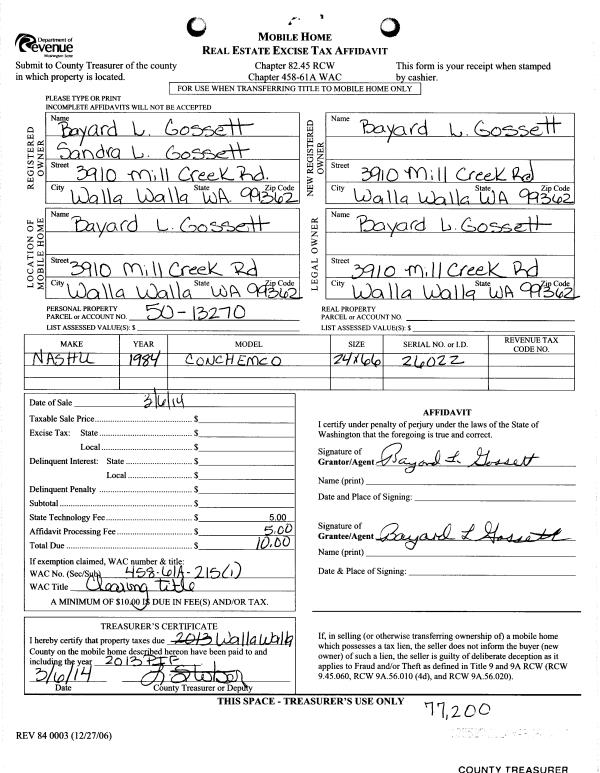 Department of
Revenue
Washington State
MOBILE HOME
REAL ESTATE EXCISE TAX AFFIDAVIT
Submit to County Treasurer of the county
in which property is located.
Chapter 82.45 RCW
Chapter 458-61A WAC
This form is your receipt when stamped
by cashier.
FOR USE WHEN TRANSFERRING TITLE TO MOBILE HOME ONLY
PLEASE TYPE OR PRINT
INCOMPLETE AFFIDAVITS WILL NOT BE ACCEPTED
REGISTERED
OWNER
Name
Bayard L. Gossett
Sandra L. Gossett
Street 3910 Mill Creek Rd.
City State Zip Code
Walla Walla WA 99362
NEW REGISTERED
OWNER
Name
Bayard L. Gossett
Street 3910 Mill Creek Rd
City State Zip Code
Walla Walla WA 99362
LOCATION OF
MOBILE HOME
Name
Bayard L. Gossett
Street 3910 Mill Creek Rd
City State Zip Code
Walla Walla WA 99362
LEGAL OWNER
Name
Bayard L. Gossett
Street 3910 Mill Creek Rd
City State Zip Code
Walla Walla WA 99362
PERSONAL PROPERTY
PARCEL or ACCOUNT NO. 50-13270
LIST ASSESSED VALUE(S): $
REAL PROPERTY
PARCEL or ACCOUNT NO.
LIST ASSESSED VALUE(S): $
MAKE YEAR MODEL SIZE SERIAL NO. or I.D. REVENUE TAX
CODE NO.
NASHU 1984 CONCHEMCO 24x66 26022
Date of Sale 3/6/14
Taxable Sale Price $
Excise Tax: State $
Local $
Delinquent Interest: State $
Local $
Delinquent Penalty $
Subtotal $
State Technology Fee $ 5.00
Affidavit Processing Fee $ 5.00
Total Due $ 10.00
If exemption claimed, WAC number & title:
WAC No. (Sec/Sub) 458-61A-215(1)
WAC Title Clearing title
A MINIMUM OF $10.00 IS DUE IN FEE(S) AND/OR TAX.
AFFIDAVIT
I certify under penalty of perjury under the laws of the State of
Washington that the foregoing is true and correct.
Signature of
Grantor/Agent Bayard L Gossett
Name (print)
Date and Place of Signing:
Signature of
Grantee/Agent Bayard L Gossett
Name (print)
Date & Place of Signing:
TREASURER'S CERTIFICATE
I hereby certify that property taxes due 2013 Walla Walla
County on the mobile home described hereon have been paid to and
including the year 2013 PIF
3/6/14
Date County Treasurer or Deputy
If, in selling (or otherwise transferring ownership of) a mobile home
which possesses a tax lien, the seller does not inform the buyer (new
owner) of such a lien, the seller is guilty of deliberate deception as it
applies to Fraud and/or Theft as defined in Title 9 and 9A RCW (RCW
9.45.060, RCW 9A.56.010 (4d), and RCW 9A.56.020).
THIS SPACE - TREASURER'S USE ONLY
77,200
REV 84 0003 (12/27/06)
COUNTY TREASURER